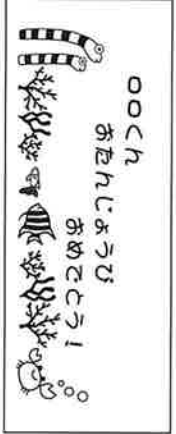 ○○くん
おたんじょうび
おめでとう！